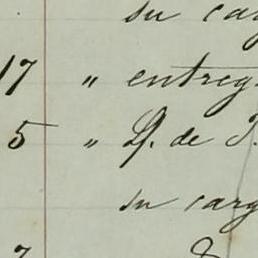 su car
17 " entreg
5 " D. de J.
su carg